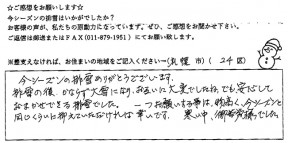 ☆ご感想をお願いします☆
今シーズンの排雪はいかがでしたか？
お客様の声が、私たちの原動力になっています。ぜひ、ご感想をお聞かせ下さい。
ご返信は郵送またはFAX(011-879-1951)にてお願い致します。
※差支えなければ、お住まいの地域をご記入ください…(札幌市)(24区)
今シーズンの排雪ありがとうございます。
排雪の後、かならず大雪になり、お互いに大変でしたね。でも安心して
おまかせできる排雪でした。一つお願いする事は、料金を今シーズンと
同じくらいに抑えていただければ幸いです。寒い中、御苦労様でした。